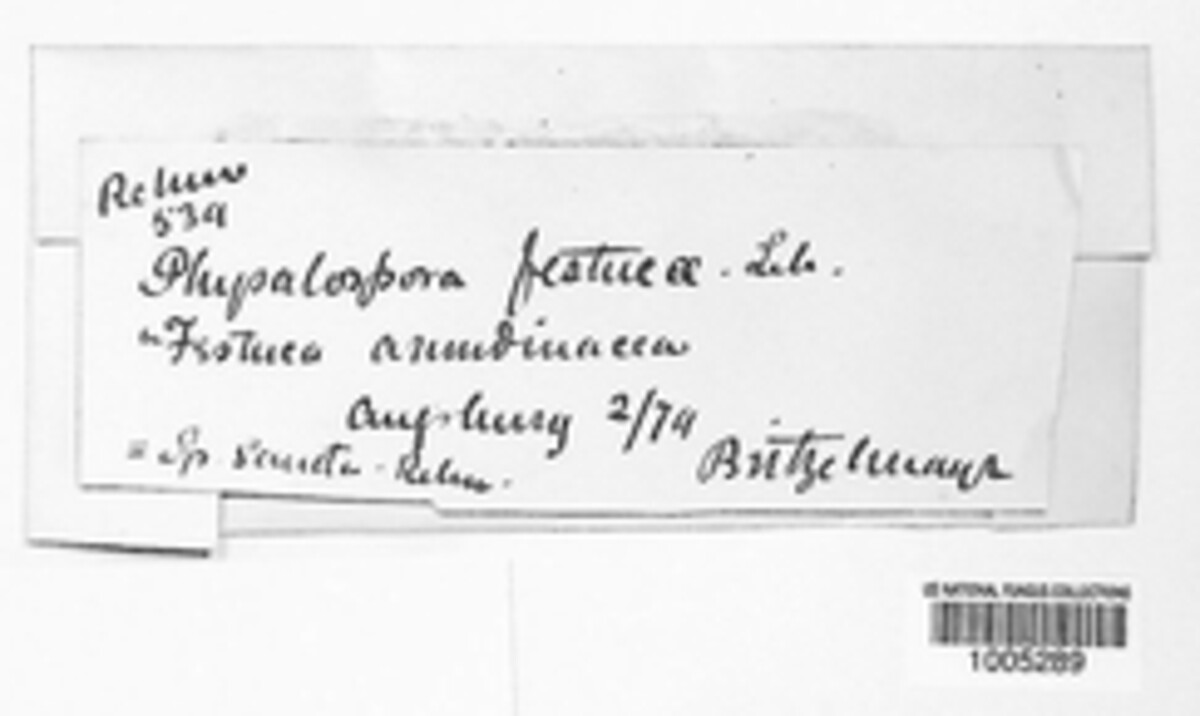 Rehm
539
Physalospora festucæ. Lib.
Festuca arundinacea
Augsburg 2/79
Britzelmayr
= Sp. Rehm.
US NATIONAL FUNGUS COLLECTIONS
1005289